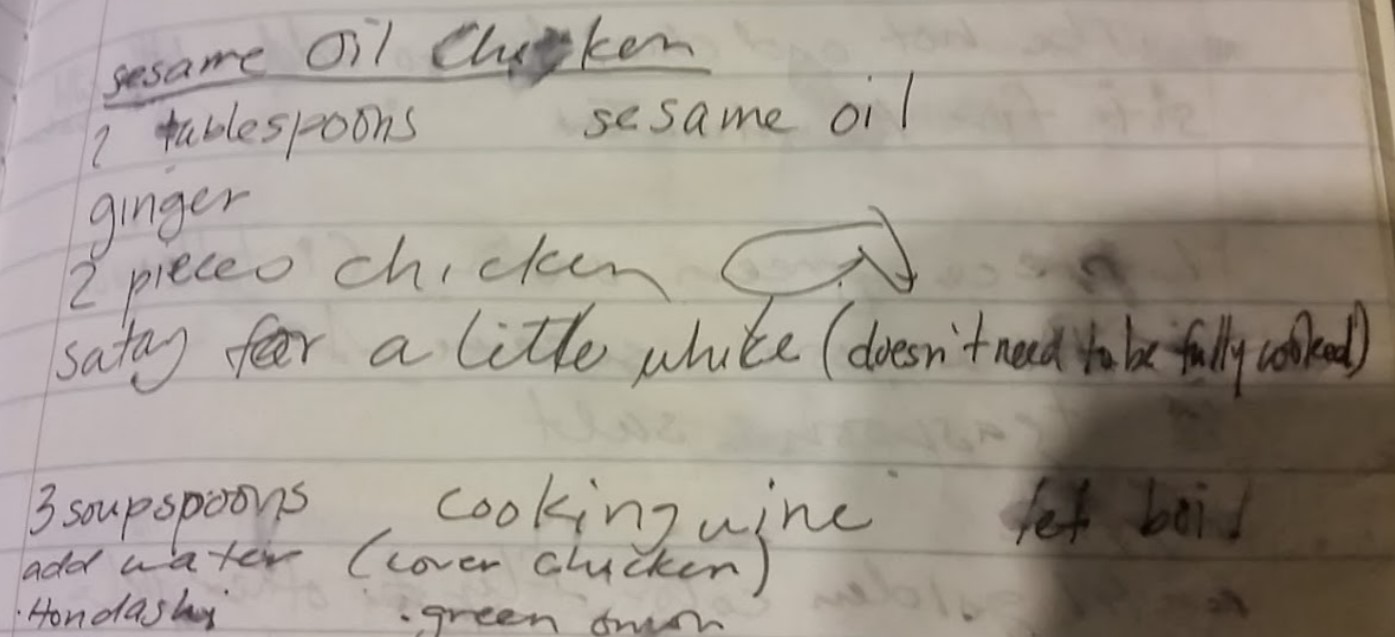 sesame oil Chicken
2 tablespoons sesame oil
ginger
2 pieces chicken
satay for a little while (doesn't need to be fully cooked)
3 soupspoons cooking wine let boil
add water (cover chicken)
·Hondashi ·green onion